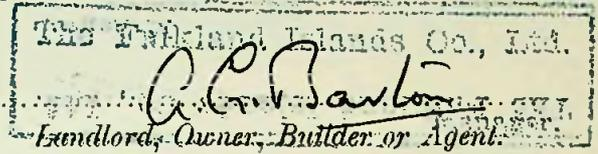 The Falkland Islands Co., Ltd.
A. G. Barton
Manager.
Landlord, Owner, Builder or Agent.